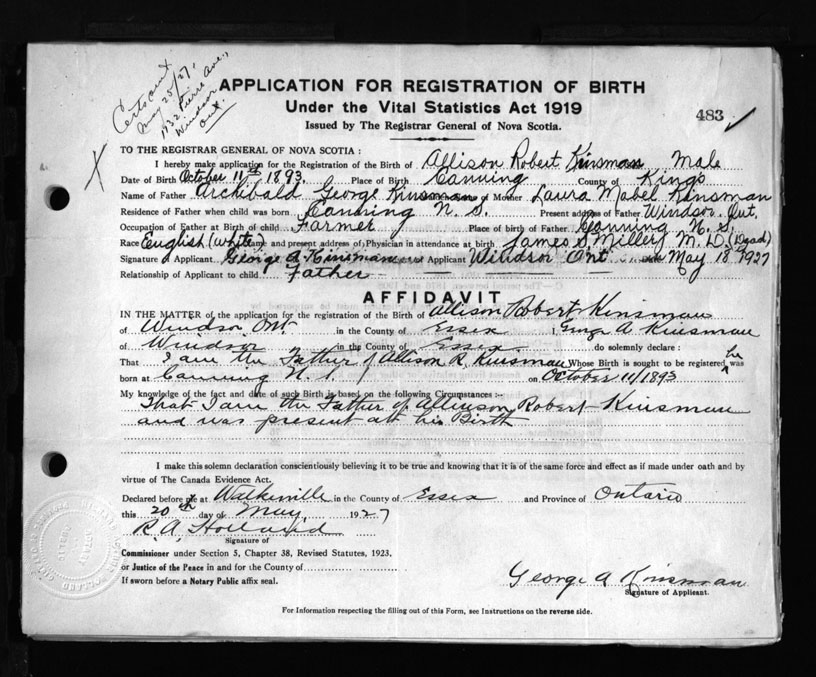 Cert sent
May 25/27,
1932 Pierre Ave.,
Windsor
Ont.
APPLICATION FOR REGISTRATION OF BIRTH
Under the Vital Statistics Act 1919
483 ✓
Issued by The Registrar General of Nova Scotia.
TO THE REGISTRAR GENERAL OF NOVA SCOTIA :
X
I hereby make application for the Registration of the Birth of Allison Robert Kinsman Male
Date of Birth October 11th 1893. Place of Birth Canning County of Kings
Name of Father Archibald George Kinsman of Mother Laura Mabel Kinsman
Residence of Father when child was born Canning N. S. Present address of Father Windsor. Ont.
Occupation of Father at Birth of child Farmer Place of birth of Father Canning N. S.
Race English (white) and present address of Physician in attendance at birth James S. Miller M. D. (Dead)
Signature of Applicant George A Kinsman Applicant Windsor Ont Date May 18 1927
Relationship of Applicant to child Father
AFFIDAVIT
IN THE MATTER of the application for the registration of the Birth of Allison Robert Kinsman
of Windsor, Ont. in the County of Essex I, George A Kinsman
of Windsor in the County of Essex do solemnly declare :
That I am the Father of Allison R. Kinsman Whose Birth is sought to be registered he was
born at Canning N. S. on October 11/1893
My knowledge of the fact and date of such Birth is based on the following Circumstances :-
That I am the Father of Allinson Robert Kinsman
and was present at his Birth
I make this solemn declaration conscientiously believing it to be true and knowing that it is of the same force and effect as if made under oath and by
virtue of The Canada Evidence Act.
Declared before me at Walkerville in the County of Essex and Province of Ontario
this 20th day of May, 1927
R. A. Holland
Signature of
Commissioner under Section 5, Chapter 38, Revised Statutes, 1923.
or Justice of the Peace in and for the County of
If sworn before a Notary Public affix seal.
George A Kinsman
Signature of Applicant.
For Information respecting the filling out of this Form, see Instructions on the reverse side.